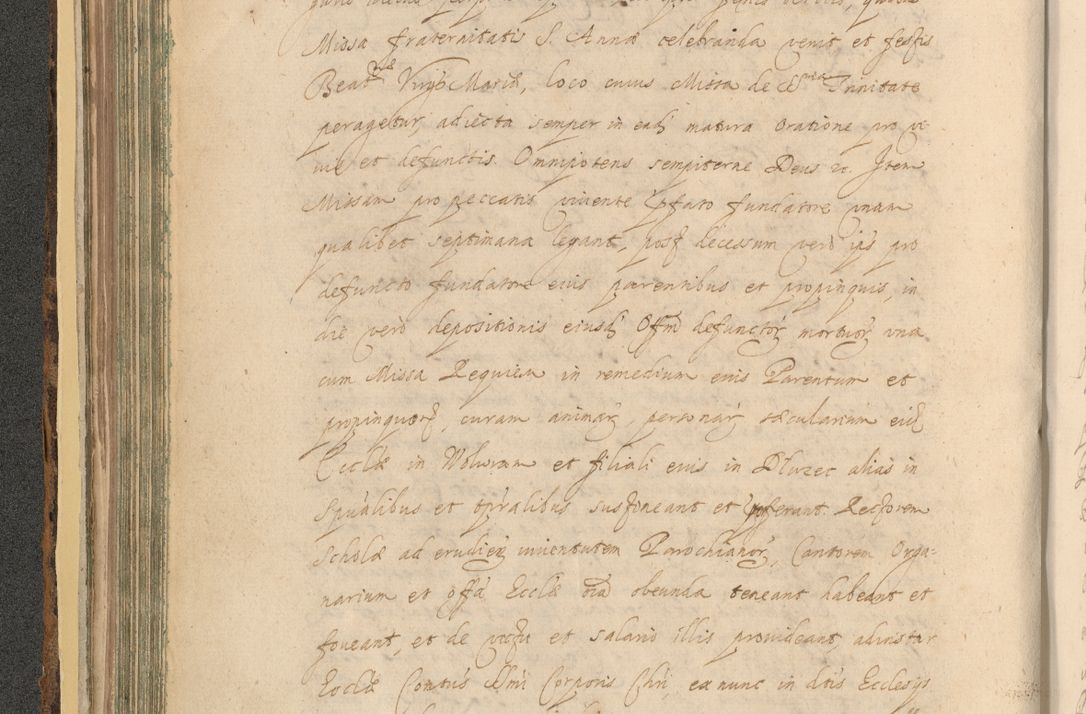 Missa fraternitatis S. Annæ celebranda venit, et festis
Beat[ae] Virg[inis] Mariæ, loco cuius Missa de S. Trinitate
peragetur, adiecta semper in ead[em] matura Oratione pro vi
vis et defunctis. Omnipotens sempiterne Deus etc. Item
Missam pro peccatis vivente p[rae]fato fundatore unam
qualibet septimana legant, post decessum verò ip[siu]s pro
defuncto fundatore eius parentibus et propinquis, in
die verò depositionis eiusd[em] Off[iciu]m defunctor[um] mortuor[um] una
cum Missa Requiem in remedium eius Parentum et
propinquor[um], curam animar[um], personar[um] sæcularium eid[em]
Eccl[esi]æ in Wolwram et filiali eius in Dluzec alias in
Sp[irit]ualibus et t[em]p[o]ralibus sustineant et p[rae]ferant. Rectorem
Scholæ ad erudien[dam] iuventutem Parochianor[um], Cantorem Orga-
narium et off[ici]a Eccl[esi]æ o[mn]ia obeunda teneant habeant et
foveant, et de victu et salario illis provideant, adinstar
Eccl[esi]æ Co[n]v[en]tus D[omi]ni Corporis Chr[ist]i, ex nunc in d[ic]tis Ecclesijs